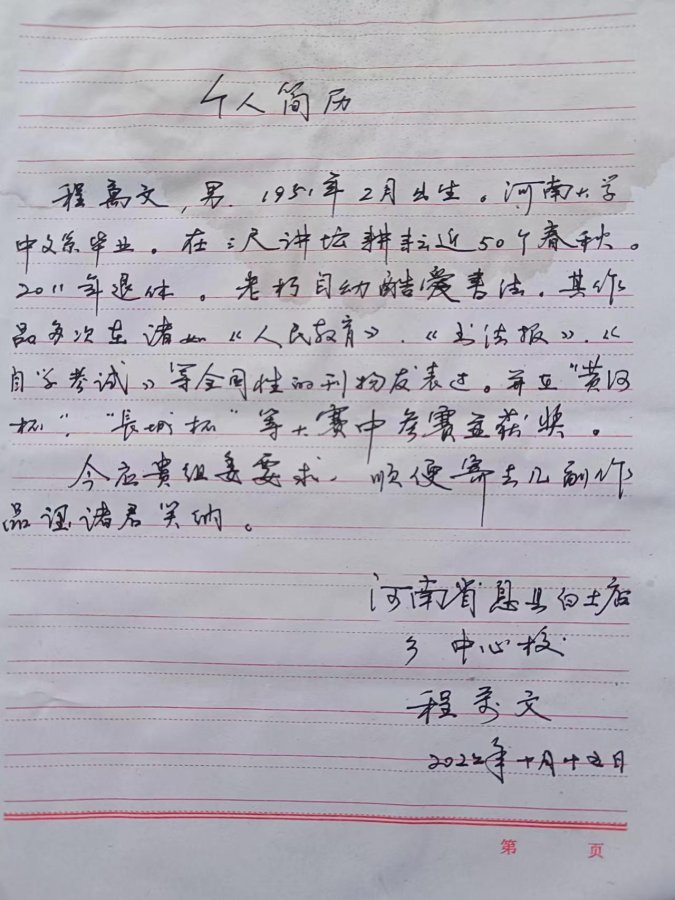 个人简历
程萬文,男.1951年2月出生。河南大学
中文系毕业。在三尺讲坛耕耘近50个春秋。
2011年退休。老朽自幼酷爱書法.其作
品多次在诸如《人民教育》.《书法报》.《
自学考试》等全国性的刊物发表过。并在“黄河
杯”.“長城杯”等大赛中参赛並获奖。
今应貴组委要求.顺便寄去几副作
品谨诸君笑纳。
河南省息县白土店
乡中心校
程萬文
2022年十月十五日
第 页